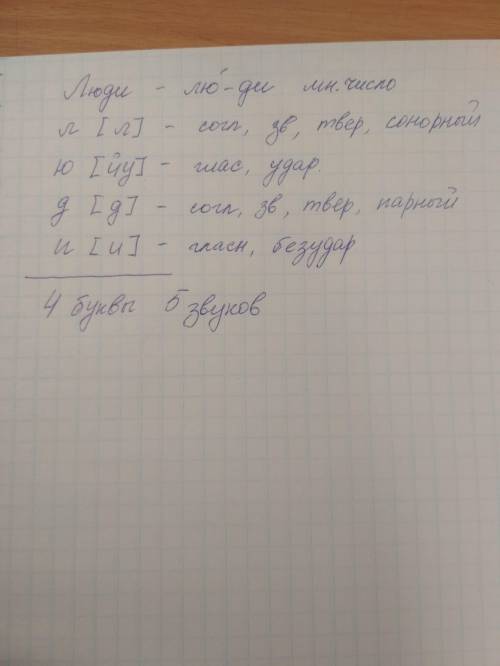 Люди - лю́-ди мн. число
л [л] - согл, зв, твер, сонорный
ю [йу] - глас, удар.
д [д] - согл, зв, твер, парный
и [и] - гласн, безудар
4 буквы 5 звуков